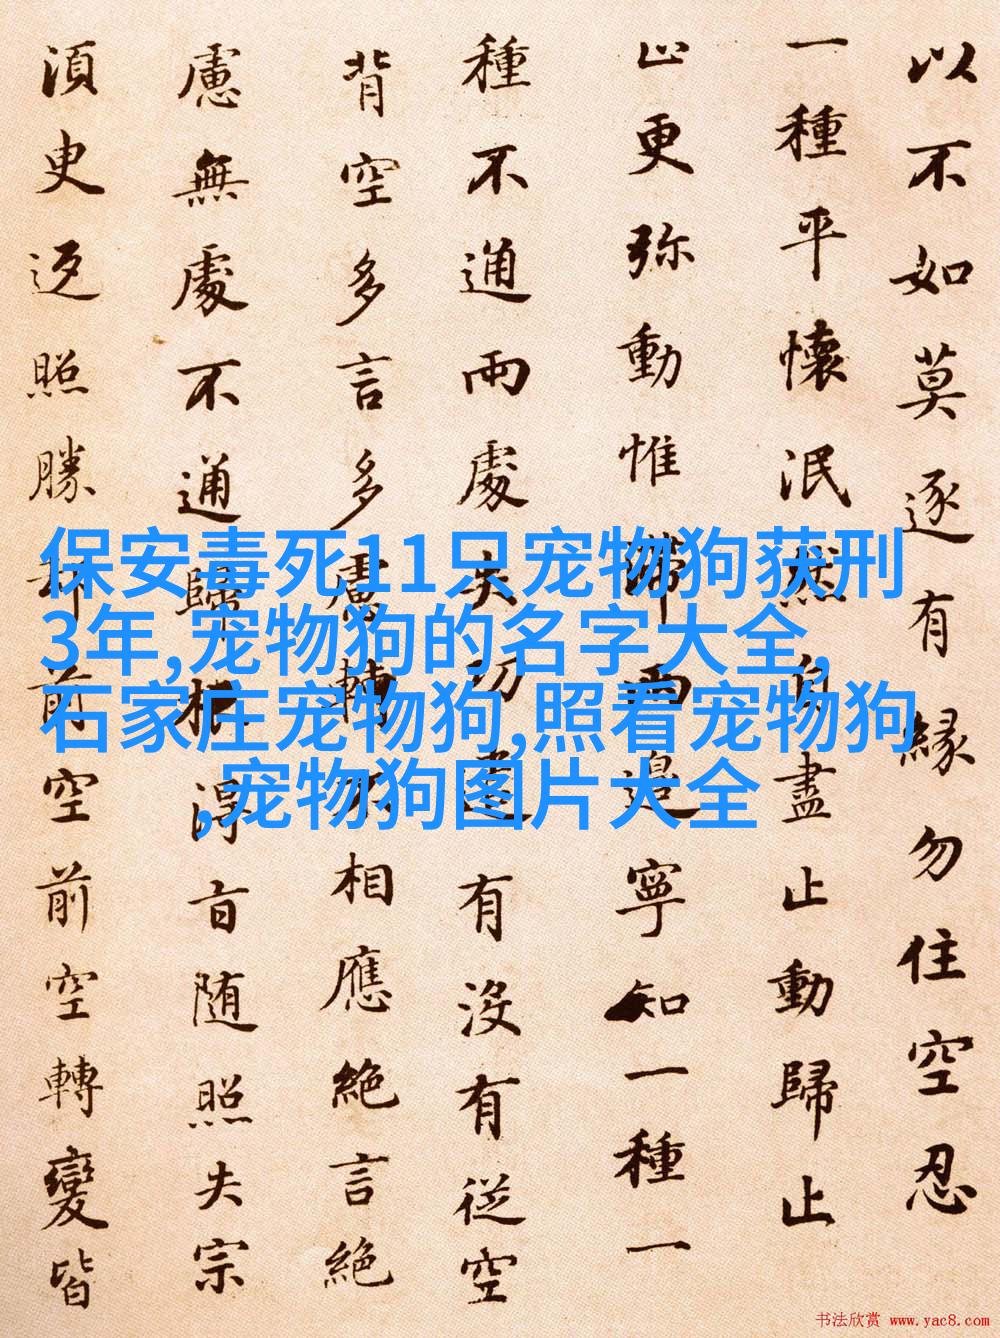 以不如莫逐有緣勿住空忍
一種平懷泯然自盡止動歸止
止更弥動惟滯兩邊寧知一種一
種不通兩處失功遣有沒有從空
背空多言多慮轉不相應絶言絶
慮無處不通歸根得旨随照失宗
須臾返照勝却前空前空轉變皆
保安毒死11只宠物狗获刑
3年,宠物狗的名字大全,
石家庄宠物狗,照看宠物狗
,宠物狗图片大全
书法欣赏 www.yac8.com